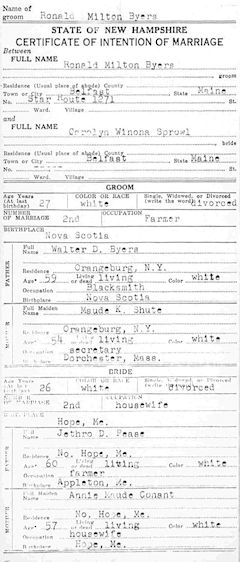 Name of
groom Ronald Milton Byers
STATE OF NEW HAMPSHIRE
CERTIFICATE OF INTENTION OF MARRIAGE
Between
FULL NAME
Ronald Milton Byers
groom
Residence (Usual place of abode) County
Town or City Belfast State Maine
No. Star Route 1871 St.
Ward. Village
and
FULL NAME
Carolyn Winona Sprowl
bride
Residence (Usual place of abode) County
Town or City Belfast State Maine
No. St.
Ward. Village
GROOM
Age Years COLOR OR RACE Single, Widowed, or Divorced
(At last birthday) 27 white (write the word) divorced
NUMBER OF MARRIAGE 2nd OCCUPATION Farmer
BIRTHPLACE
Nova Scotia
FATHER
Full Name Walter D. Byers
Residence Orangeburg, N.Y.
Age* 59 Living or dead living Color white
Occupation Blacksmith
Birthplace Nova Scotia
MOTHER
Full Maiden Name Maude K. Shute
Residence Orangeburg, N.Y.
Age* 54 living Color white
Occupation secretary
Birthplace Dorchester, Mass.
BRIDE
Age Years COLOR OR RACE Single, Widowed or Divorced
(At last birthday) 26 white divorced
OF MARRIAGE 2nd OCCUPATION housewife
Hope, Me.
FATHER
Full Name Jethro D. Pease
Residence No. Hope, Me.
Age* 60 Living or dead living Color white
Occupation farmer
Birthplace Appleton, Me.
MOTHER
Full Maiden Name Annie Maude Conant
Residence No. Hope, Me.
Age* 57 Living or dead living Color white
Occupation housewife
Birthplace Hope, Me.